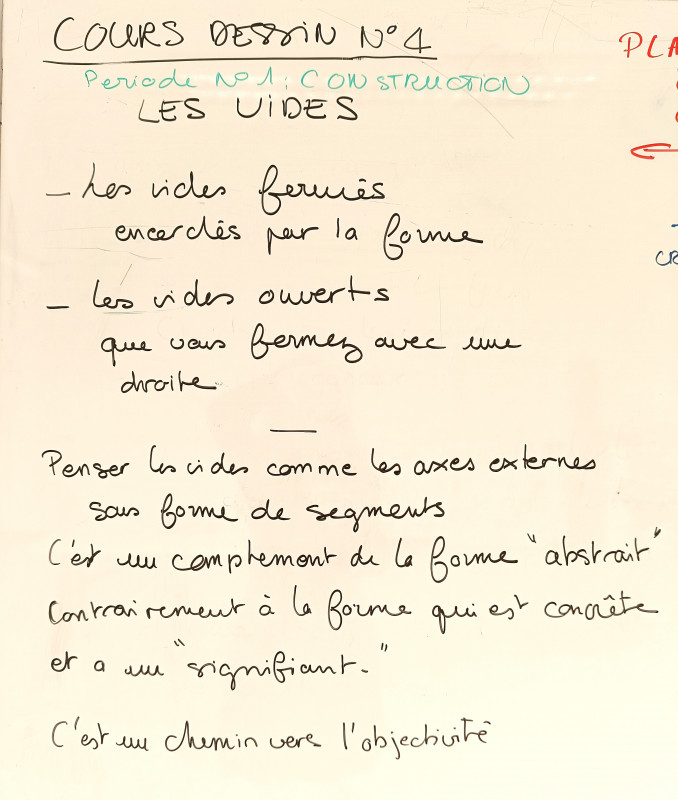 COURS DESSIN N°4
Periode N°1: CONSTRUCTION
LES VIDES
- Les vides fermés
encerclés par la forme
- les vides ouverts
que vous fermez avec une
droite
Penser les vides comme les axes externes
sous forme de segments
C'est un complément de la forme "abstrait"
Contrairement à la forme qui est concrête
et a un "signifiant."
C'est un chemin vers l'objectivité
PLA
CR